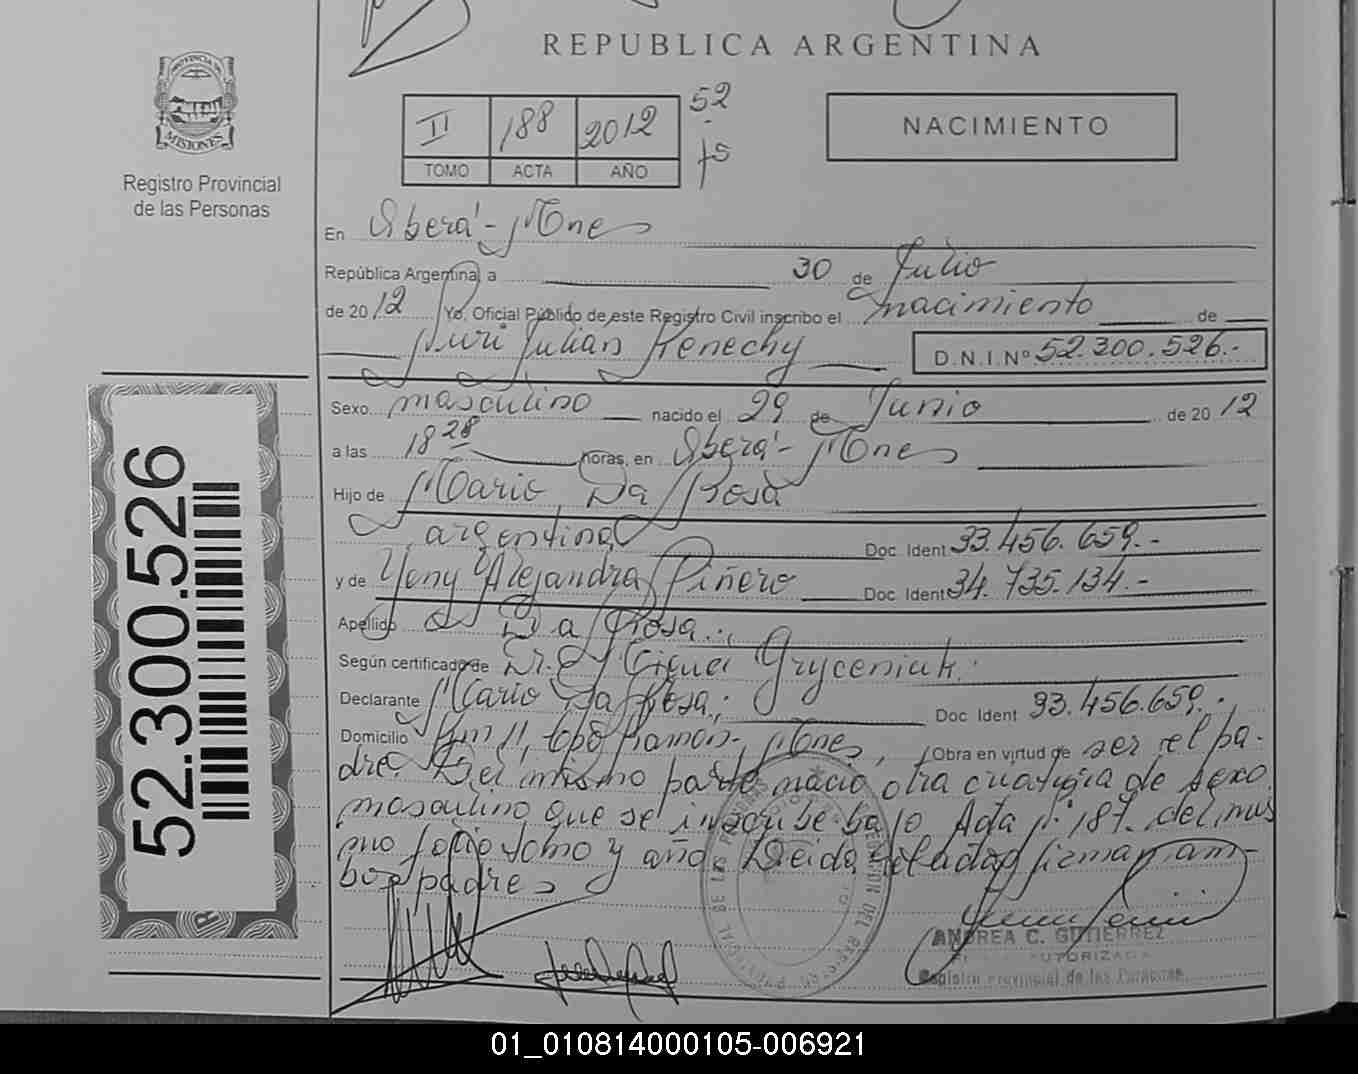 REPUBLICA ARGENTINA
PROVINCIA DE
MISIONES
Registro Provincial
de las Personas
II 188 2012 52
TOMO ACTA AÑO
NACIMIENTO
En Oberá - Mnes
República Argentina, a 30 de Julio
de 2012 Yo, Oficial Público de este Registro Civil inscribo el nacimiento de
Yuri Julian Kenechy D.N.I.Nº 52.300.526.-
Sexo masculino nacido el 29 de Junio de 2012
a las 18 28 horas, en Oberá - Mnes
Hijo de Mario Da Rosa
argentina Doc. Ident 33.456.659.-
y de Yeny Alejandra Piñero Doc. Ident 34.735.134.-
Apellido Da Rosa.
Según certificado de Dr. Miguel Gryceniuk.
Declarante Mario Da Rosa. Doc Ident 33.456.659.-
Domicilio Km 11, Cpo Ramon, Mnes, Obra en virtud de ser el pa-
dre. Del mismo parto nació otra criatura de sexo
masculino que se inscribe bajo Acta nº 187 del mis
mo folio tomo y año. Leida el acta firman am-
bos padres
ANDREA C. GUTIERREZ
AUTORIZADA
Registro Provincial de las Personas
52.300.526
01_010814000105-006921